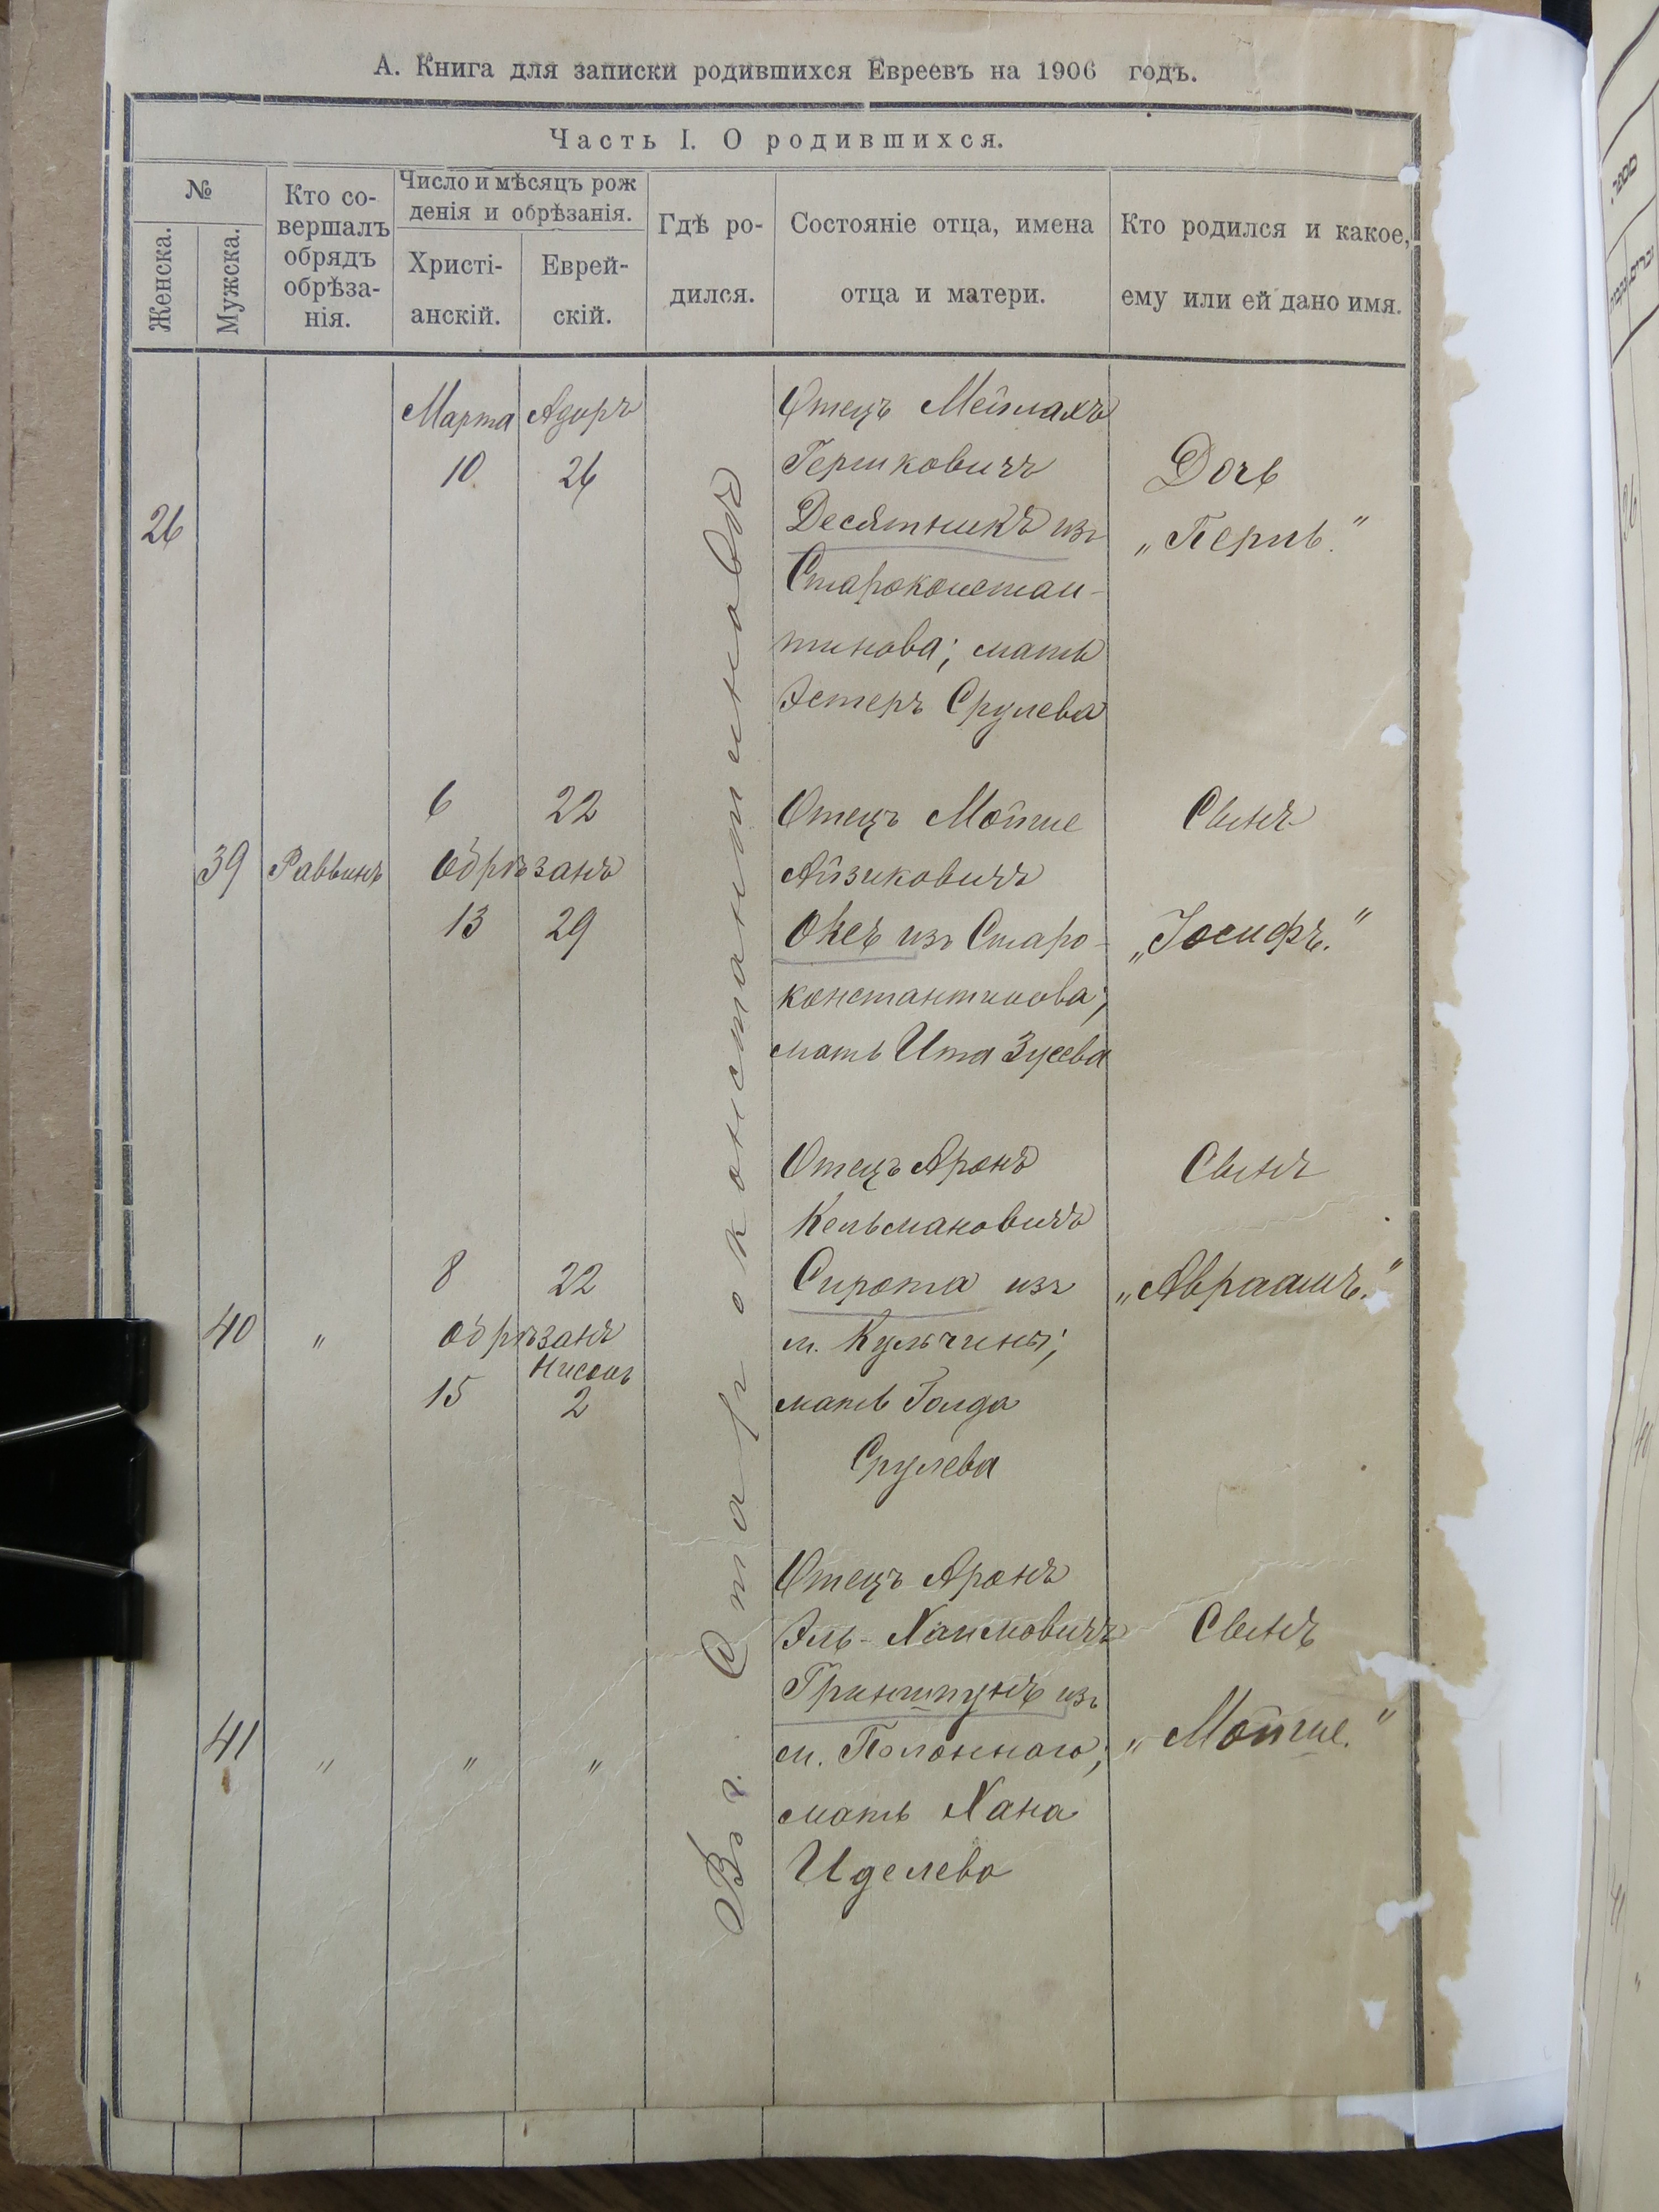 А. Книга для записки родившихся Евреевъ на 1906 годъ.
Часть I. О родившихся.
№
Женска.
Мужска.
Кто со-
вершалъ
обрядъ
обрѣза-
нія.
Число и мѣсяцъ рож
денія и обрѣзанія.
Христі-
анскій.
Еврей-
скій.
Гдѣ ро-
дился.
Состояніе отца, имена
отца и матери.
Кто родился и какое,
ему или ей дано имя.
Въ г. Староконстантиновѣ
26
Марта Адаръ
10 26
Отецъ Мейлахъ
Гершковичъ
Десятникъ изъ
Староконстан-
тинова; мать
Эстеръ Срулева
Дочь
„Перль."
39
Раввинъ
6 22
Обрѣзанъ
13 29
Отецъ Мотие
Айзиковичъ
Оксъ изъ Старо-
константинова;
мать Ита Зусева
Сынъ
„Іосифъ."
40
"
8 22
Обрѣзанъ
Нисонъ
15 2
Отецъ Аронъ
Кельмановичъ
Сирота изъ
м. Кульчины;
мать Голда
Срулева
Сынъ
„Авраамъ."
41
" " "
Отецъ Аронъ
Эль-Хаимовичъ
Гриншпунъ изъ
м. Полоннаго;
мать Хана
Иделева
Сынъ
„Мотие."